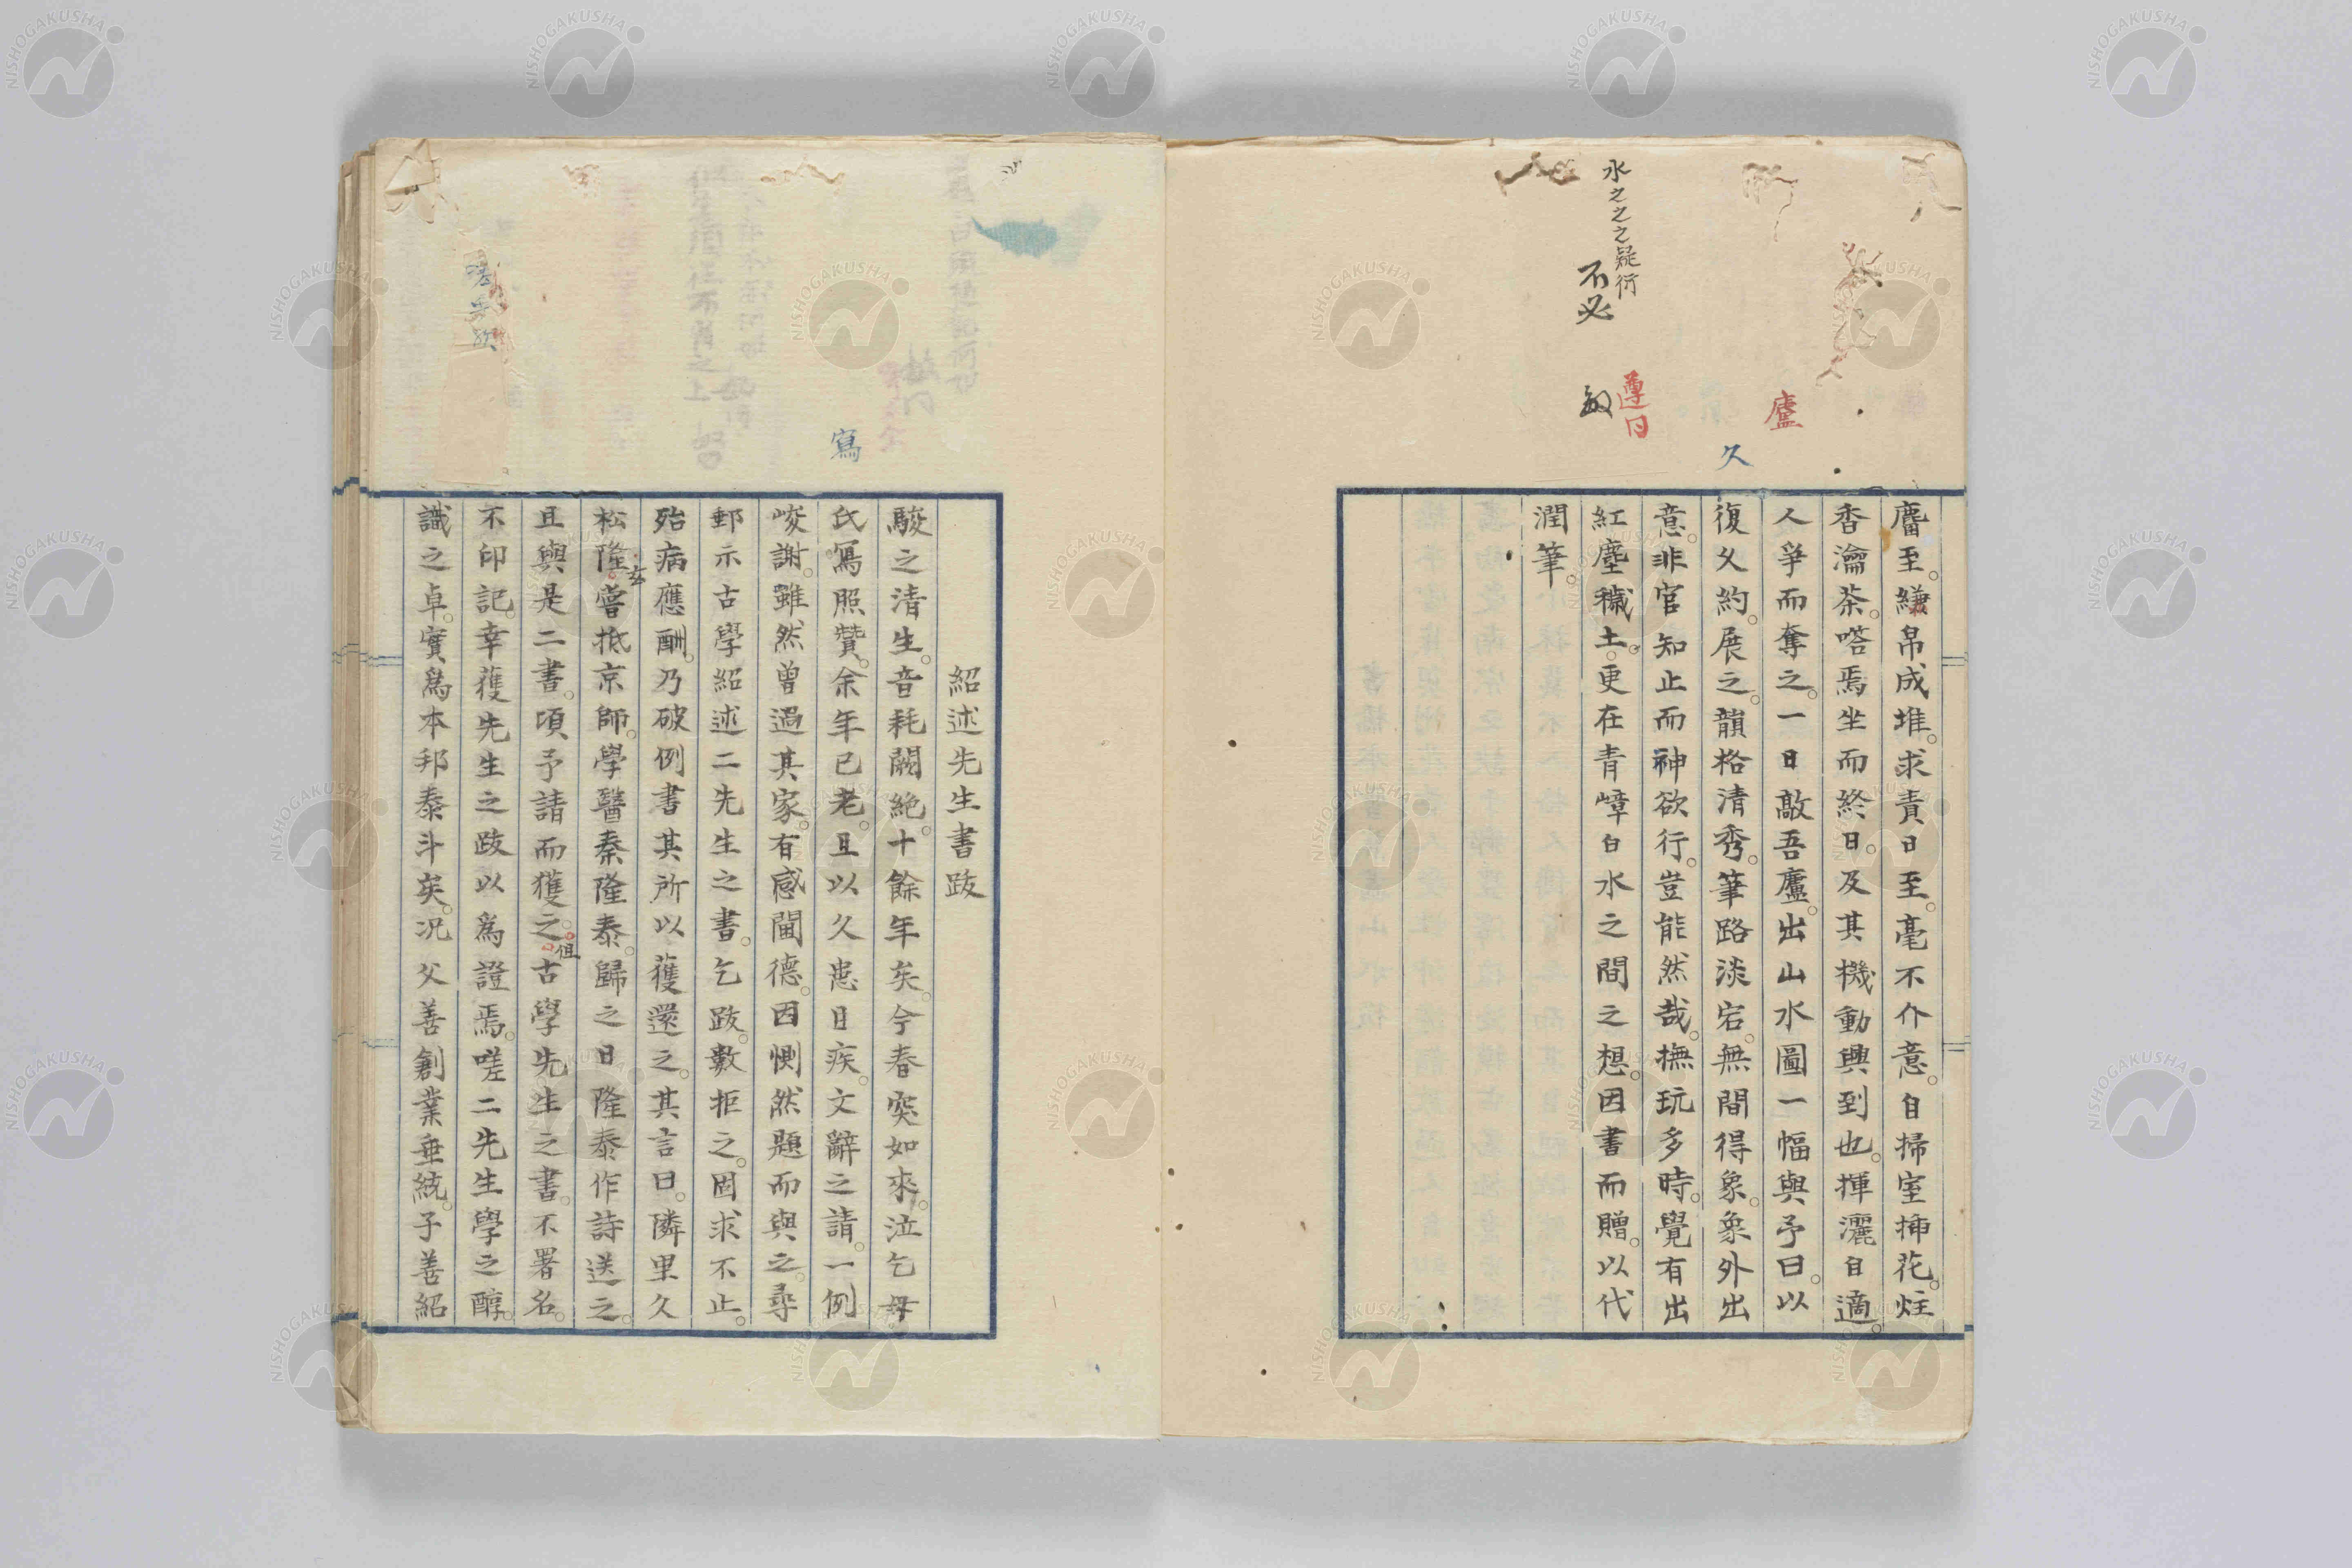 麕至。縑帛成堆。求責日至。毫不介意。自掃室挿花。炷
香瀹茶。嗒焉坐而終日。及其機動興到也。揮灑自適。
人爭而奪之。一日敲吾廬。出山水圖一幅與予曰。以
復父約。展之。韻格清秀。筆路淡宕。無間得象。象外出
意。非官知止而神欲行。豈能然哉。撫玩多時。覺有出
紅塵穢土。更在青嶂白水之間之想。因書而贈。以代
潤筆。
廬
久
遵曰
水之之之疑衍
不必
敏
紹述先生書跋
駿之清生。音耗闕絶。十餘年矣。今春突如來。泣乞母
氏寫照贊。余年已老。且以久患日疾。文辭之請。一例
峻謝。雖然曾過其家。有感閫德。因惻然題而與之。尋
郵示古學紹述二先生之書。乞跋。數拒之。固求不止。
殆病應酬。乃破例書其所以獲還之。其言曰。隣里久
松隆嘗抵京師。學醫秦隆泰。歸之日隆泰作詩送之。
玄
且與是二書。頃予請而獲之。古學先生之書。不署名。
但
不印記。幸獲先生之跋以爲證焉。嗟二先生學之醇。
識之卓。實爲本邦泰斗矣。况父善創業垂統。子善紹
寫
NISHOGAKUSHA